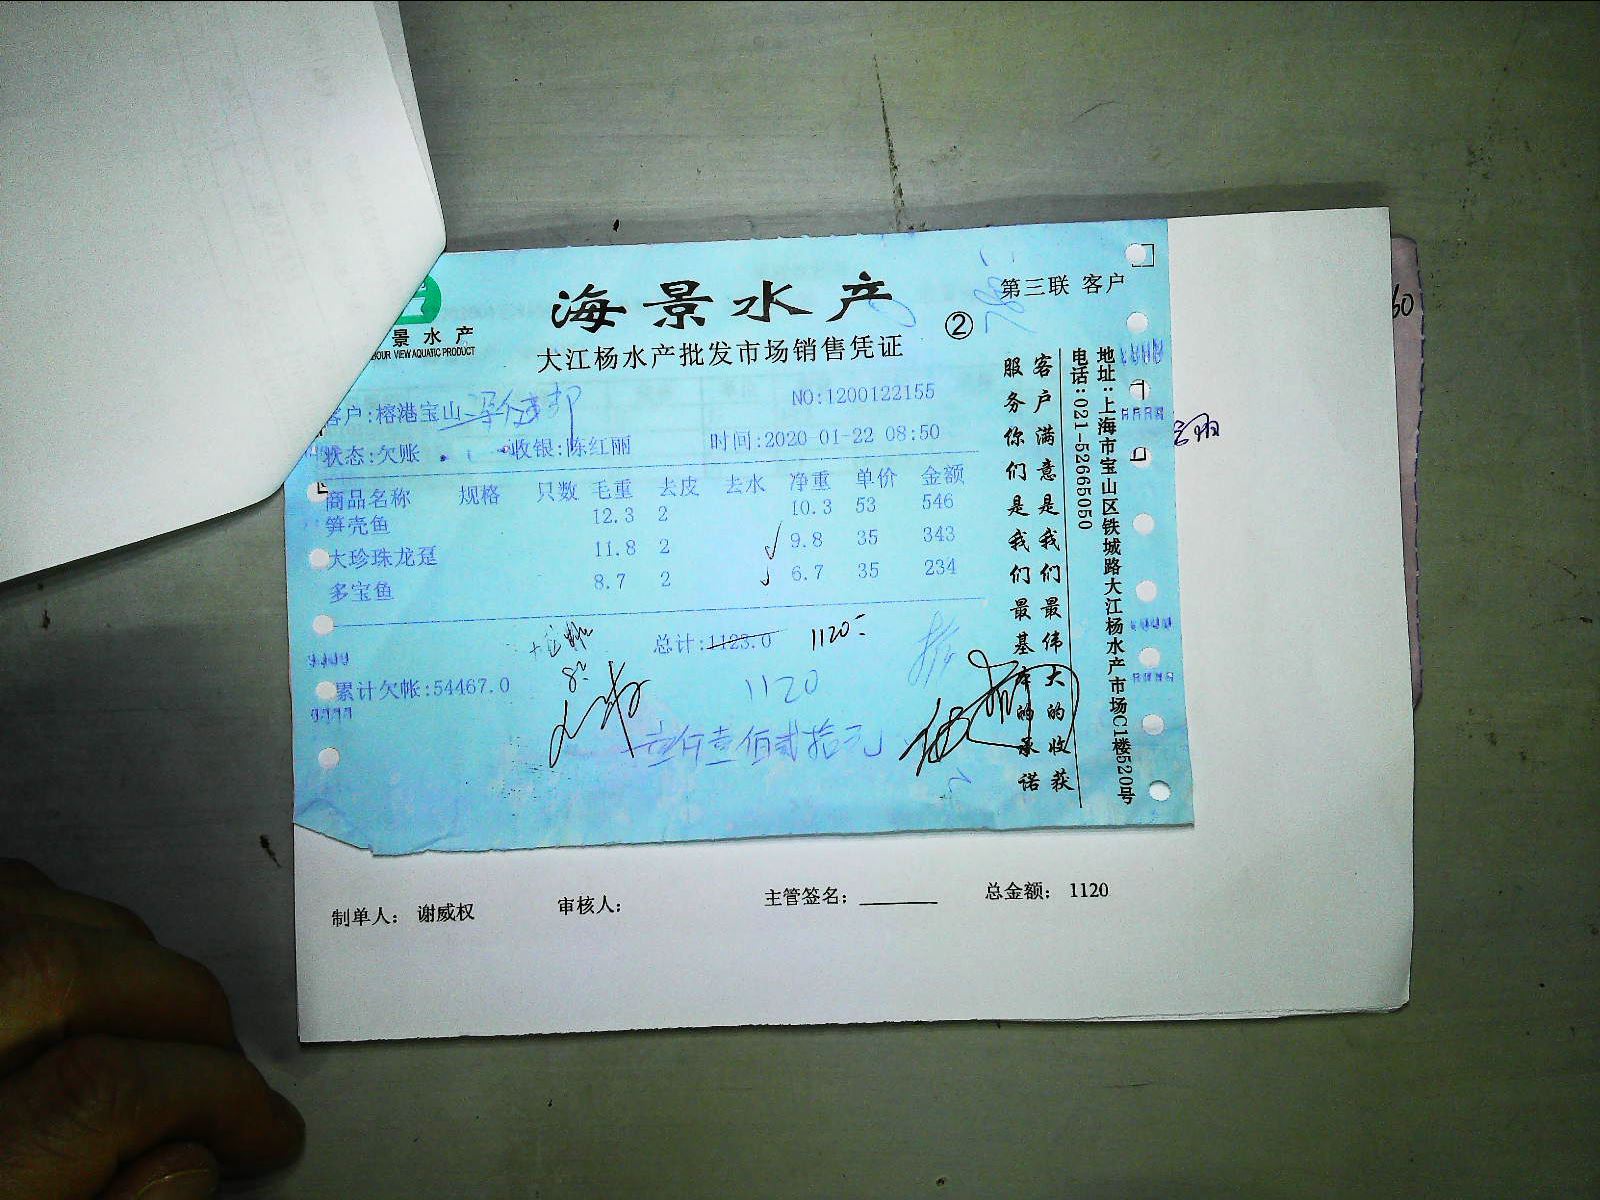 海景水产
第三联 客户
②
景水产
OUR VIEW AQUATIC PRODUCT
大江杨水产批发市场销售凭证
客户:榕港宝山
NO:1200122155
状态:欠账
收银:陈红丽
时间:2020-01-22 08:50
商品名称 规格 只数 毛重 去皮 去水 净重 单价 金额
笋壳鱼 12.3 2 10.3 53 546
大珍珠龙趸 11.8 2 9.8 35 343
多宝鱼 8.7 2 6.7 35 234
总计:1123.0 1120
累计欠帐:54467.0
1120
壹仟壹佰贰拾元
客户满意是我们最伟大的收获
服务你们是我们最基本的承诺
地址:上海市宝山区铁城路大江杨水产市场C1楼520号
电话:021-52665050
60
制单人: 谢威权 审核人: 主管签名: 总金额: 1120